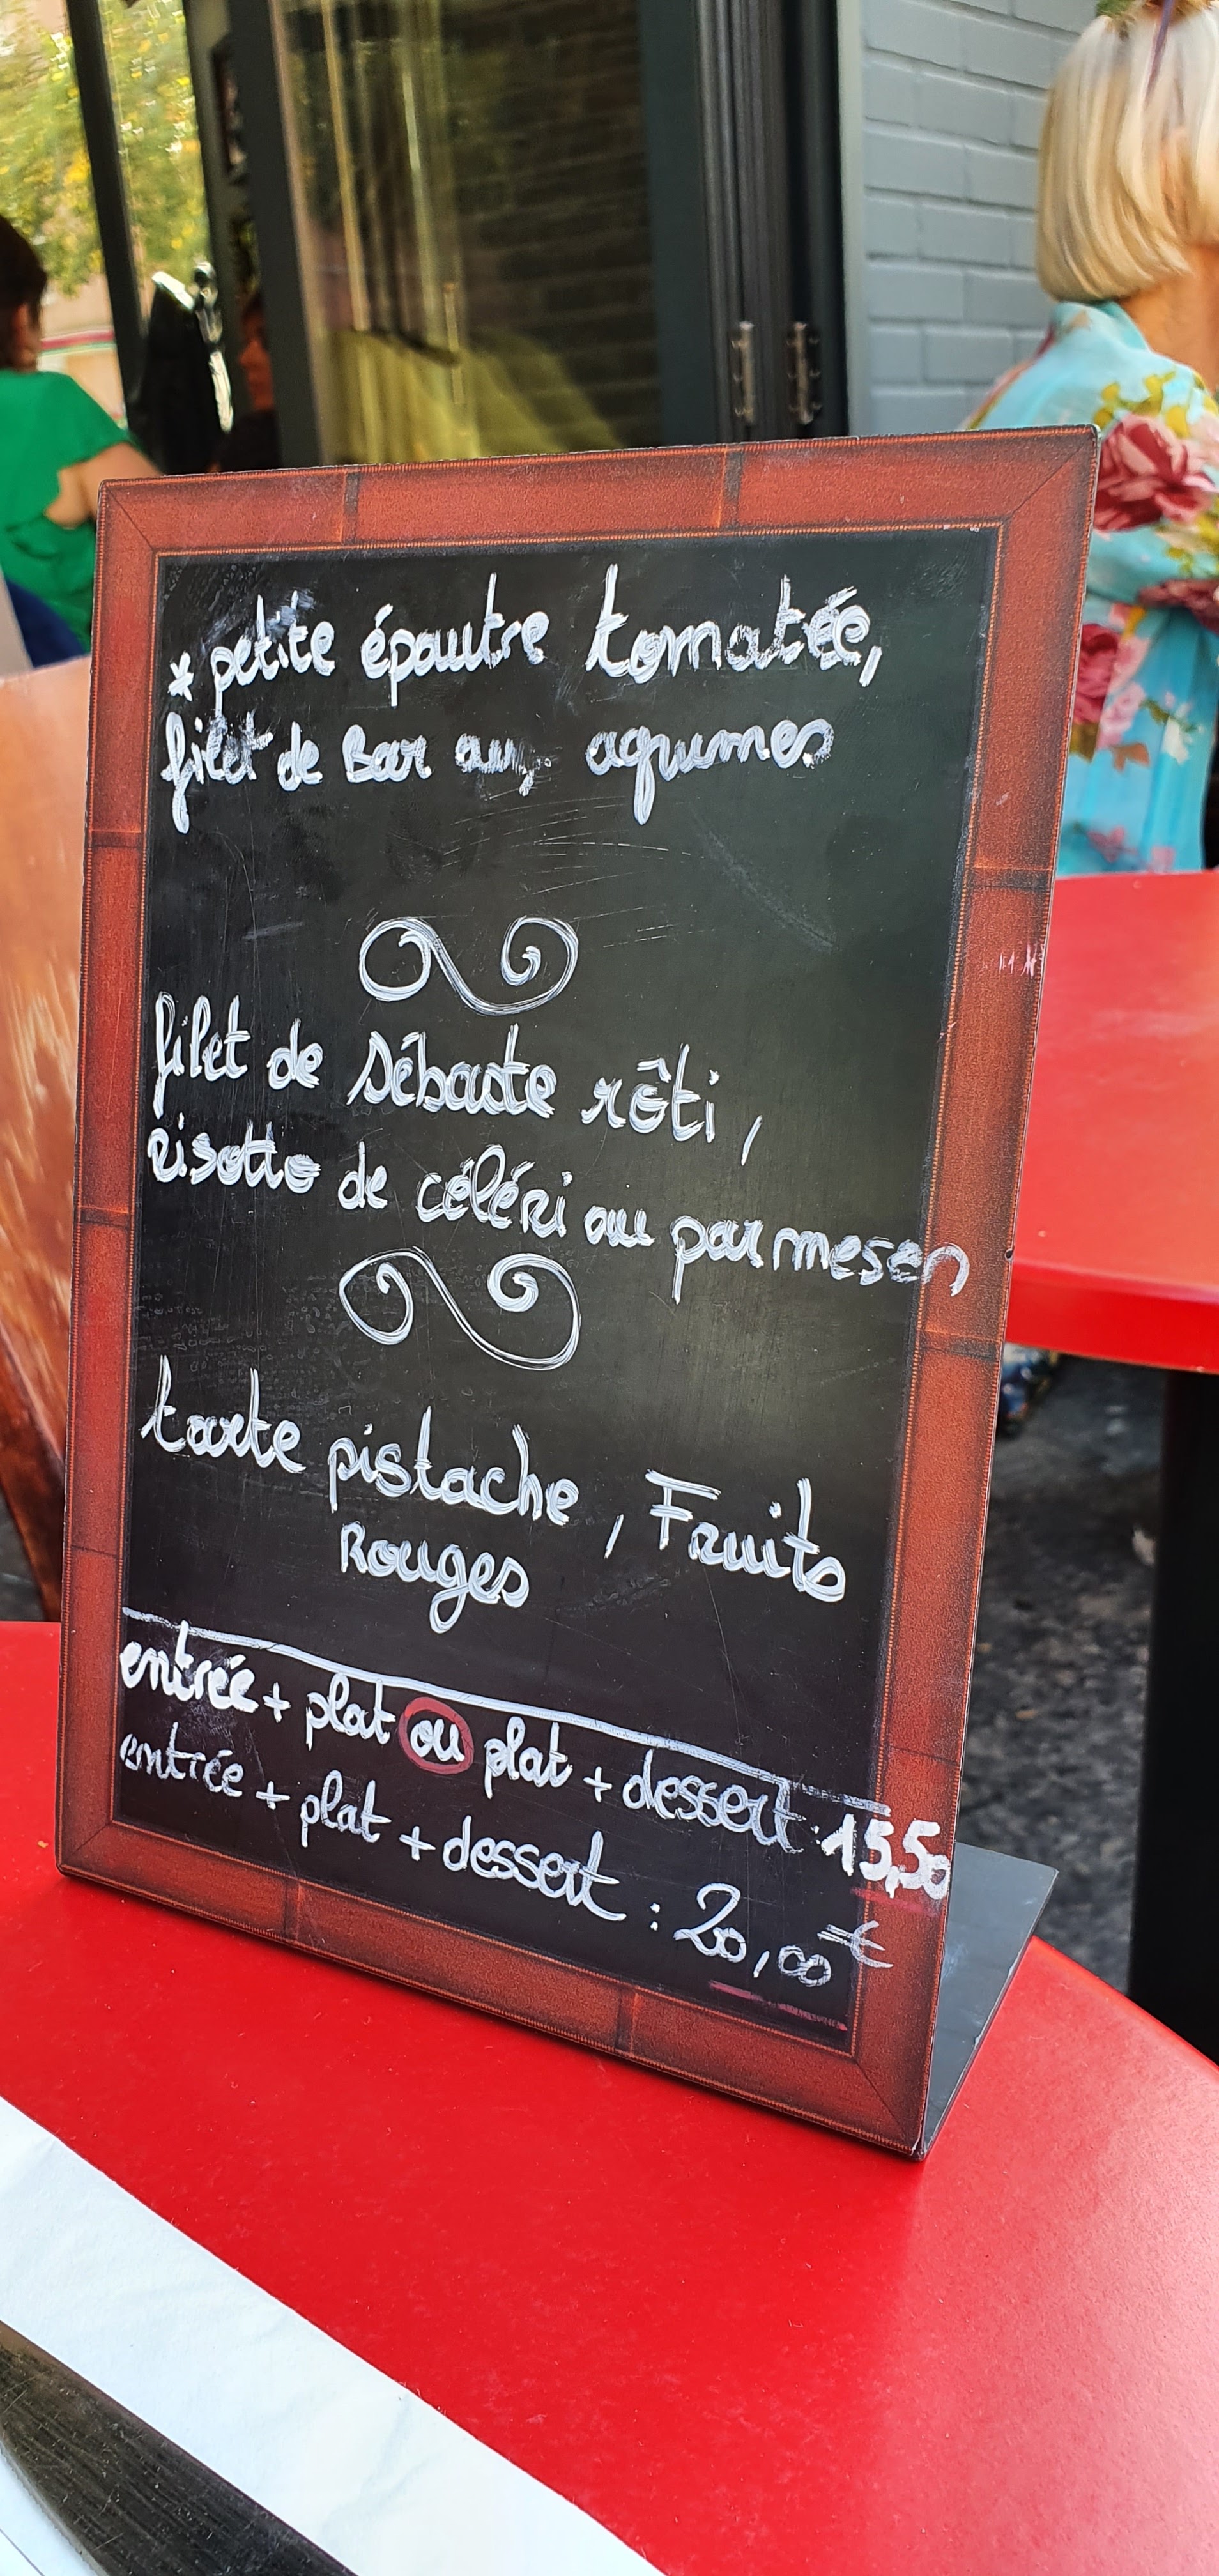 * petite épautre tomatée,
filet de Bar aux agrumes
filet de Sébaste rôti,
risotto de céléri au parmesen
tarte pistache, Fruits
Rouges
entrée + plat ou plat + dessert : 15,50
entrée + plat + dessert : 20,00 €